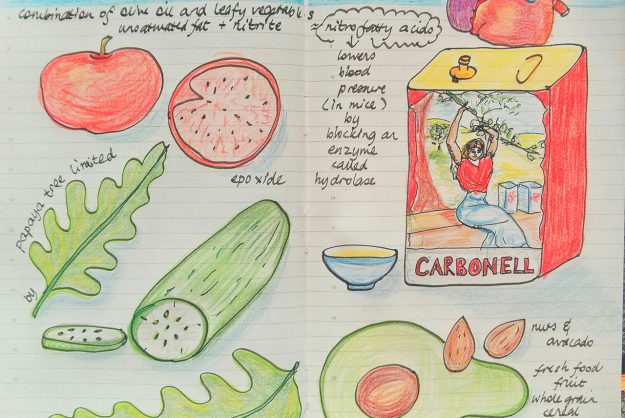 combination of olive oil and leafy vegetables
unsaturated fat + nitrite
= nitro fatty acids
lowers
blood
pressure
(in mice)
by
blocking an
enzyme
called
hydrolase
epoxide
by papaya tree limited
CARBONELL
nuts &
avocado
fresh food
fruit
whole grain
cereal